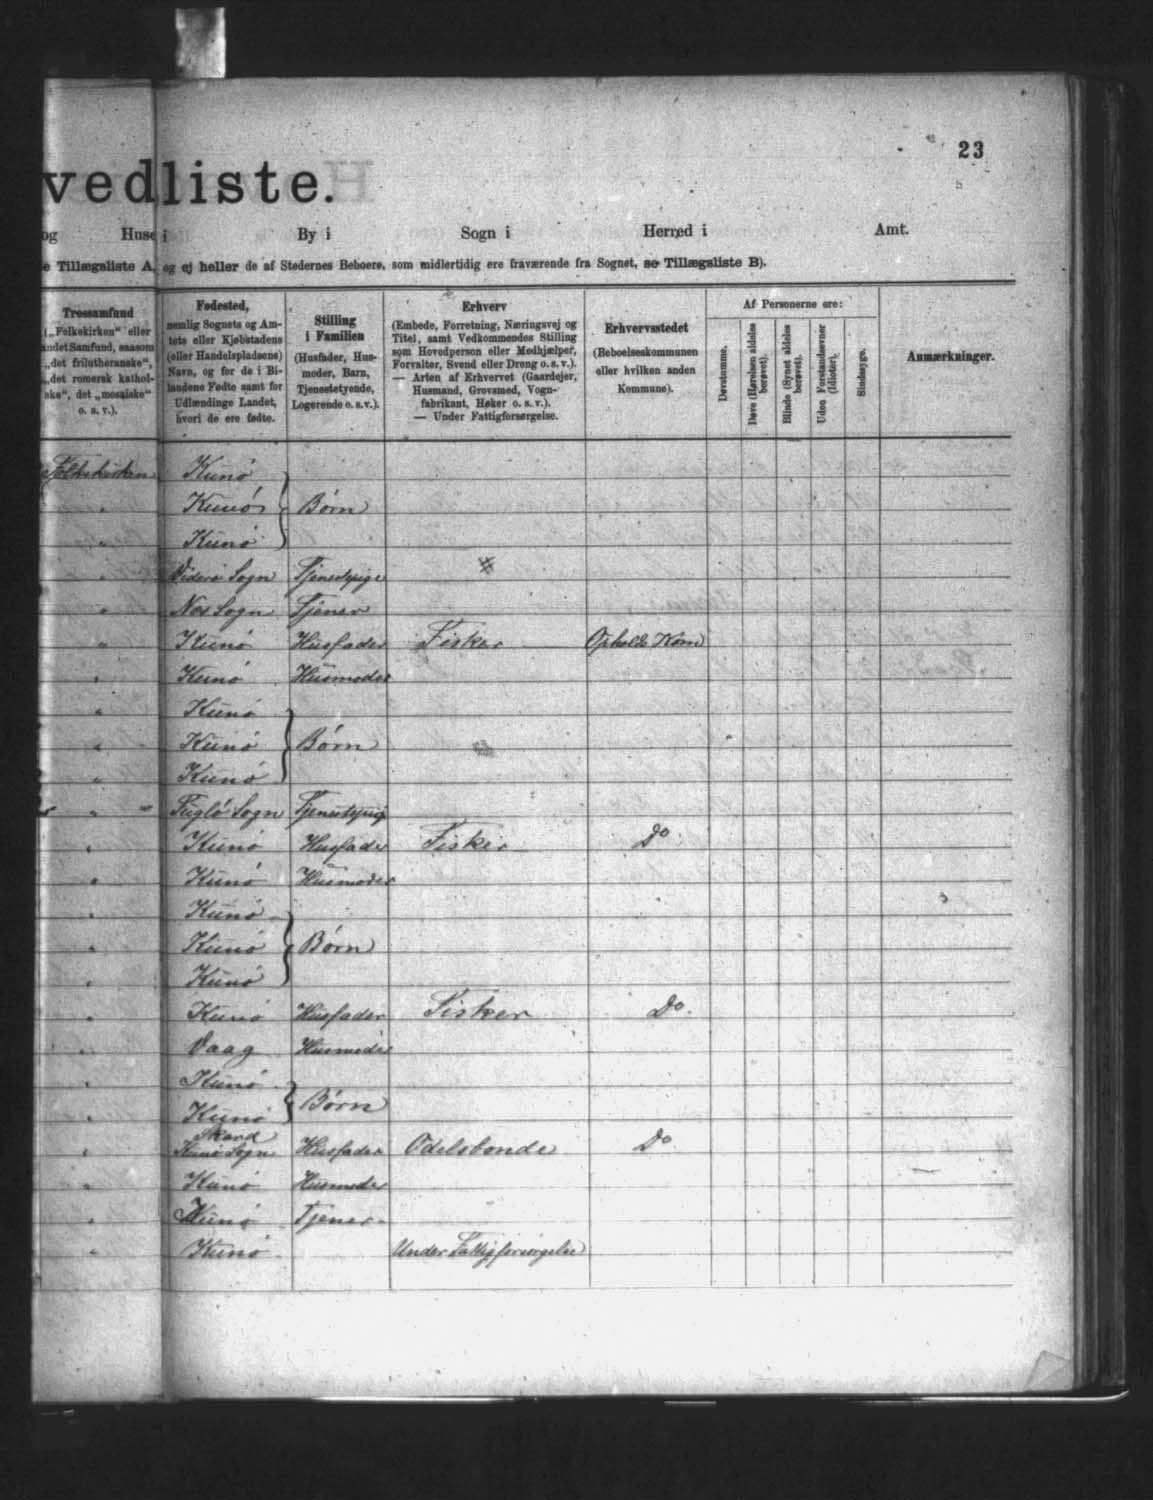 23
vedliste.
og Huse i By i Sogn i Herred i Amt.
e Tillægsliste A, og ej heller de af Stedernes Beboere, som midlertidig ere fraværende fra Sognet, se Tillægsliste B).
Trossamfund
(„Folkekirken“ eller
andet Samfund, saasom
„det frilutheranske“,
„det romersk kathol-
ske“, det „mosaiske“
o. s. v.).
Fødested,
nemlig Sognets og Am-
tets eller Kjøbstadens
(eller Handelspladsens)
Navn, og for de i Bi-
landene Fødte samt for
Udlændinge Landet,
hvori de ere fødte.
Stilling
i Familien
(Husfader, Hus-
moder, Barn,
Tjenestetyende,
Logerende o. s. v.).
Erhverv
(Embede, Forretning, Næringsvej og
Titel, samt Vedkommendes Stilling
som Hovedperson eller Medhjælper,
Forvalter, Svend eller Dreng o. s. v.).
— Arten af Erhvervet (Gaardejer,
Husmand, Grovsmed, Vogn-
fabrikant, Høker o. s. v.).
— Under Fattigforsørgelse.
Erhvervsstedet
(Beboelseskommunen
eller hvilken anden
Kommune).
Af Personerne ere:
Døvstumme.
Døve (Hørelsen aldeles
berøvet).
Blinde (Synet aldeles
berøvet).
Uden Forstandsevner
(Idioter).
Sindssyge.
Anmærkninger.
Folkekirken Kunö
" Kunö Børn
" Kunö
" Viderø Sogn Tjenestepige
" Nes Sogn Tjener
" Kunö Husfader Fisker Opholds Kom
" Kunö Husmoder
" Kunö
" Kunö Børn
" Kunö
" Fuglø Sogn Tjenestepige
" Kunö Husfader Fisker Do
" Kunö Husmoder
" Kunö
" Kunö Børn
" Kunö
" Kunö Husfader Fisker Do
" Vaag Husmoder
" Kunö
" Kunö Børn
Skard
" Kunø Sogn Husfader Odelsbonde Do
" Kunö Husmoder
" Kunö Tjener
" Kunö Under Fattigforsørgelse